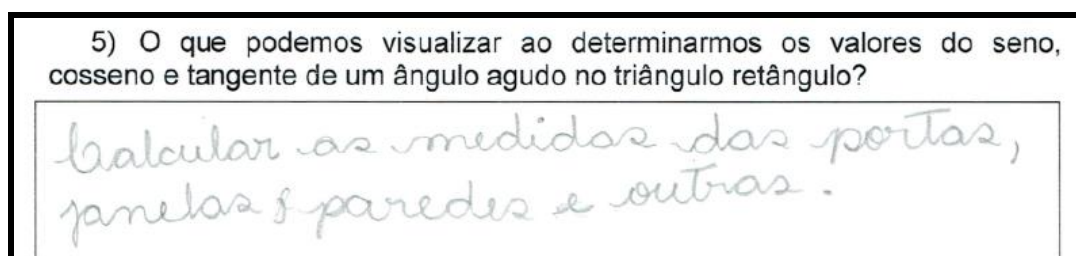 5) O que podemos visualizar ao determinarmos os valores do seno,
cosseno e tangente de um ângulo agudo no triângulo retângulo?
Calcular as medidas das portas,
janelas, paredes e outras.